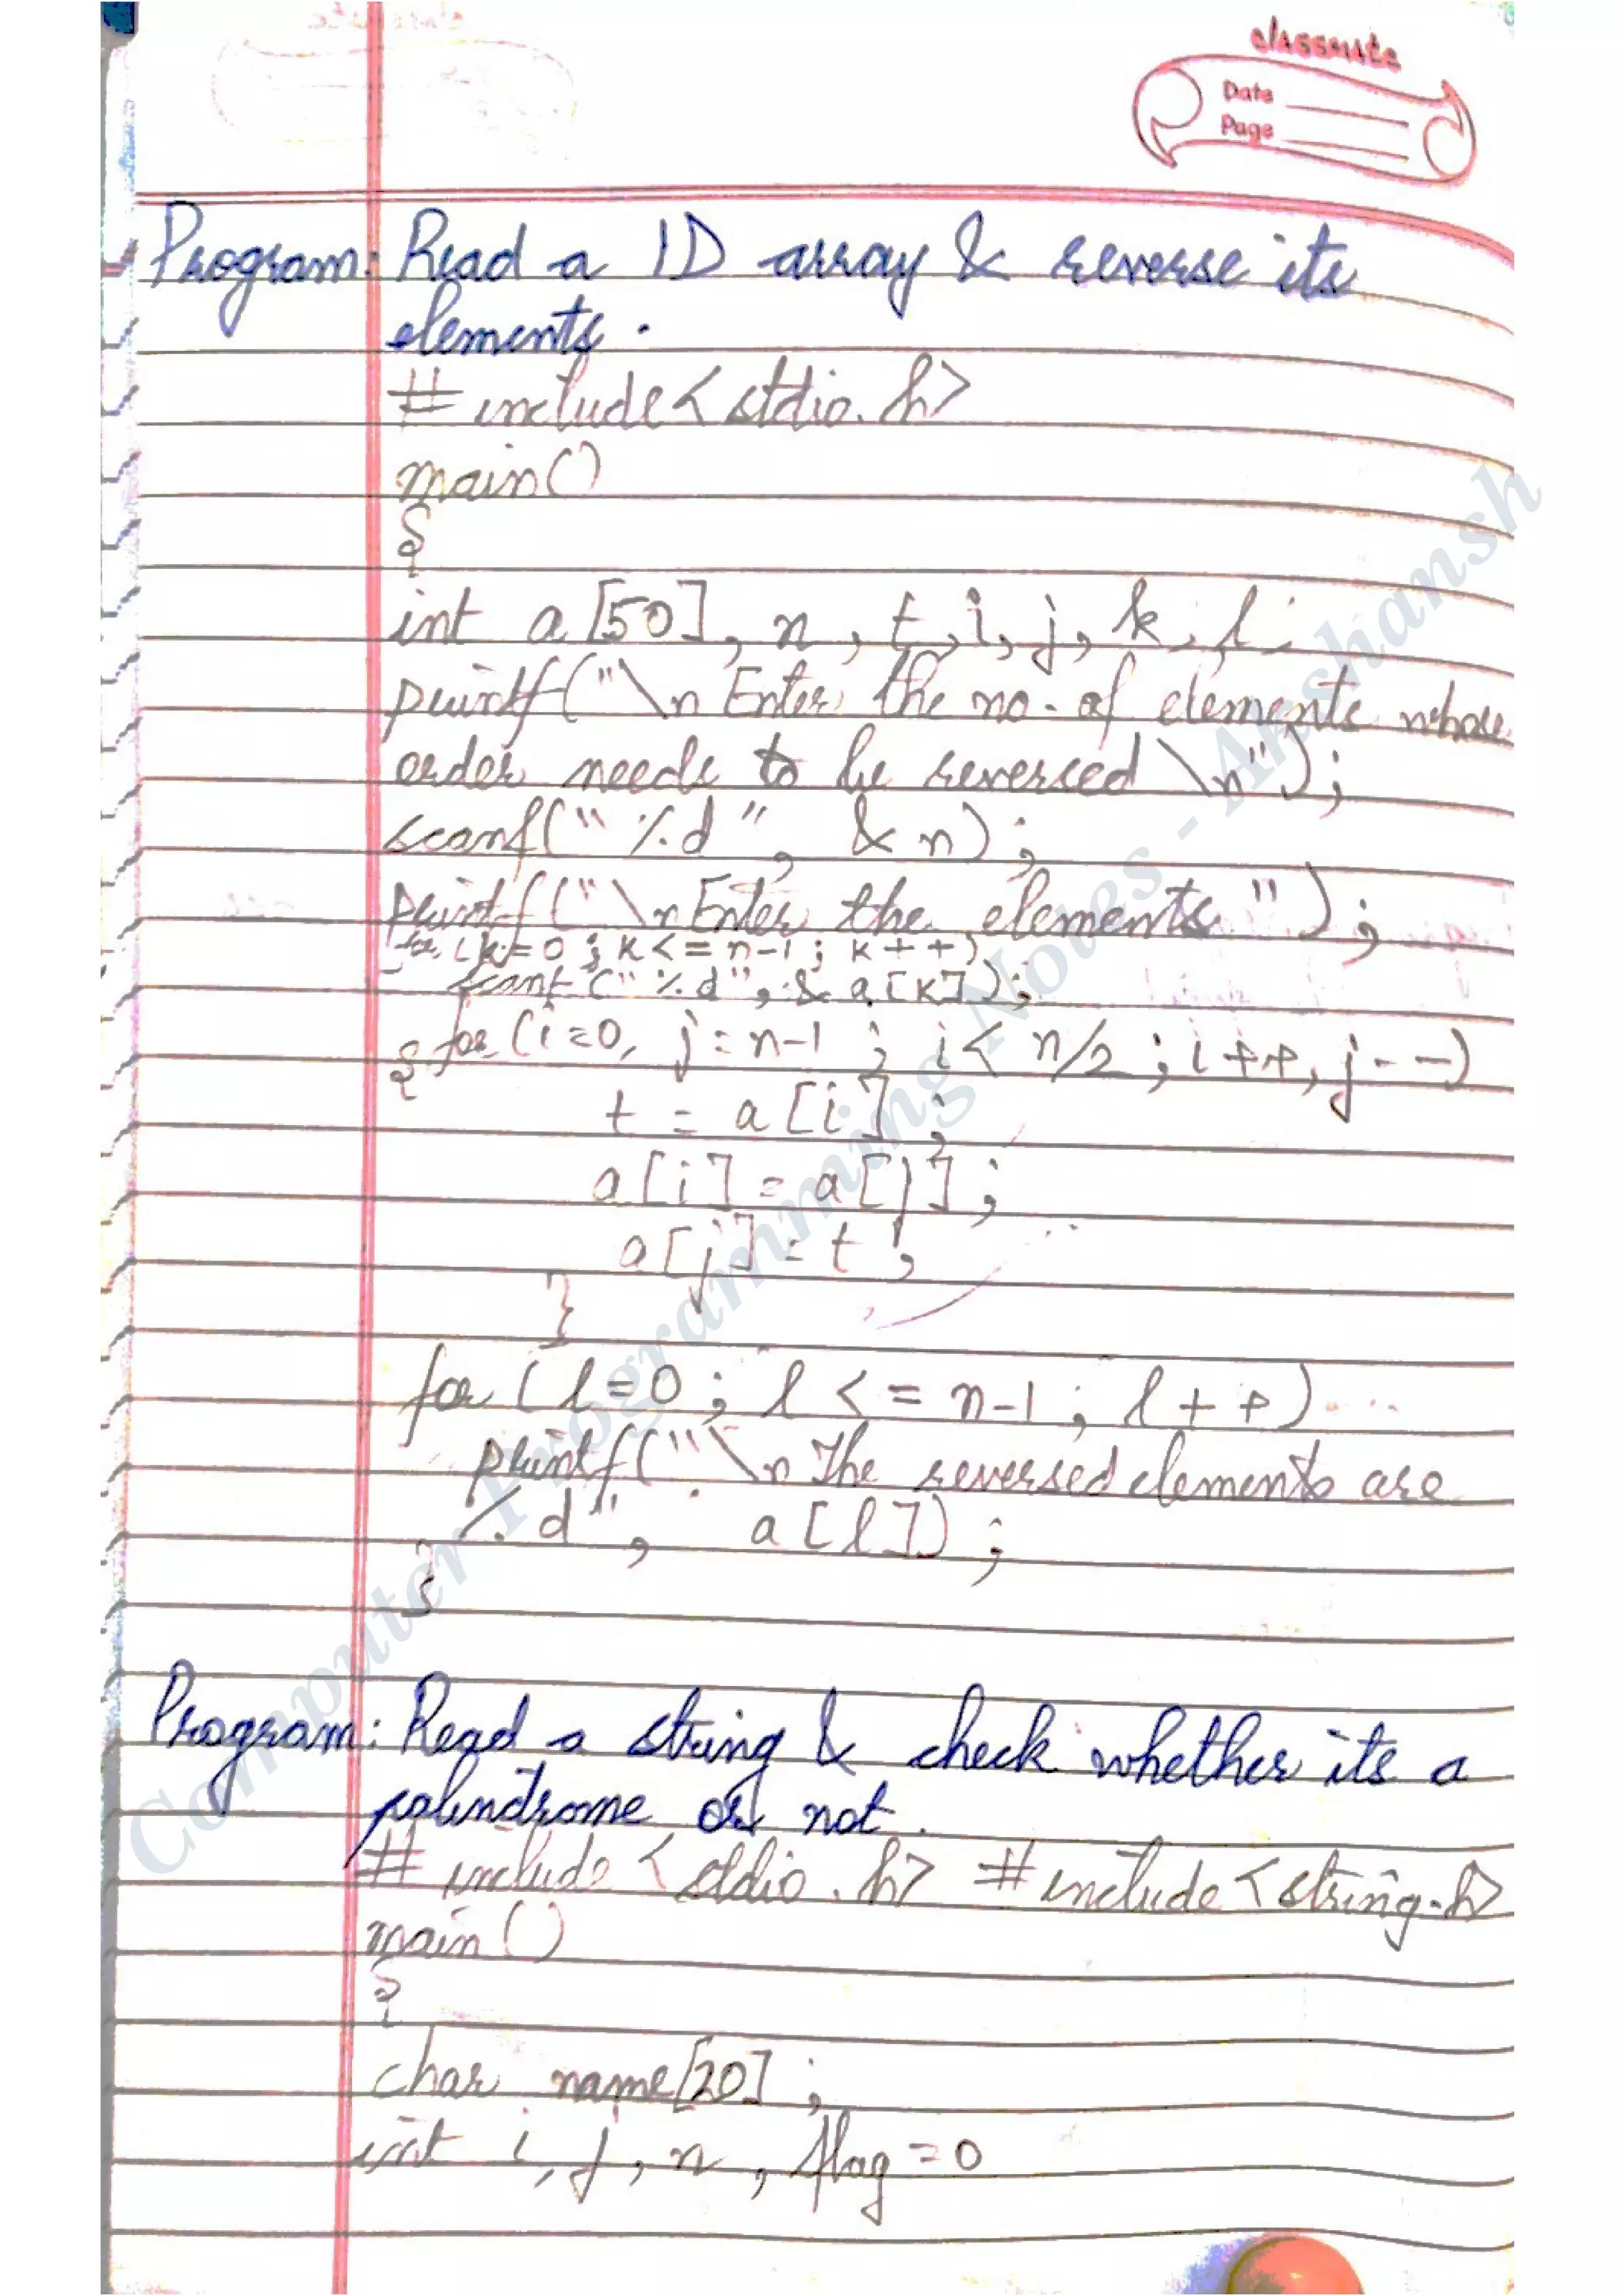 classmate
Date
Page
Program: Read a 1D array & reverse its
elements.
#include<stdio.h>
main()
{
int a[50], n, t, i, j, k, l;
printf("\n Enter the no. of elements whose
order needs to be reversed \n");
scanf("%d", &n);
printf("\n Enter the elements");
for(k=0; k<=n-1; k++)
scanf("%d", &a[k]);
{ for(i=0, j=n-1; i<n/2; i++, j--)
t = a[i];
a[i] = a[j];
a[j] = t;
}
for(l=0; l<=n-1; l++)
printf("\n The reversed elements are
%d", a[l]);
}
Program: Read a string & check whether its a
palindrome or not.
#include<stdio.h> #include<string.h>
main()
{
char name[20];
int i, j, n, flag=0
Computer Programming Notes - Akshansh